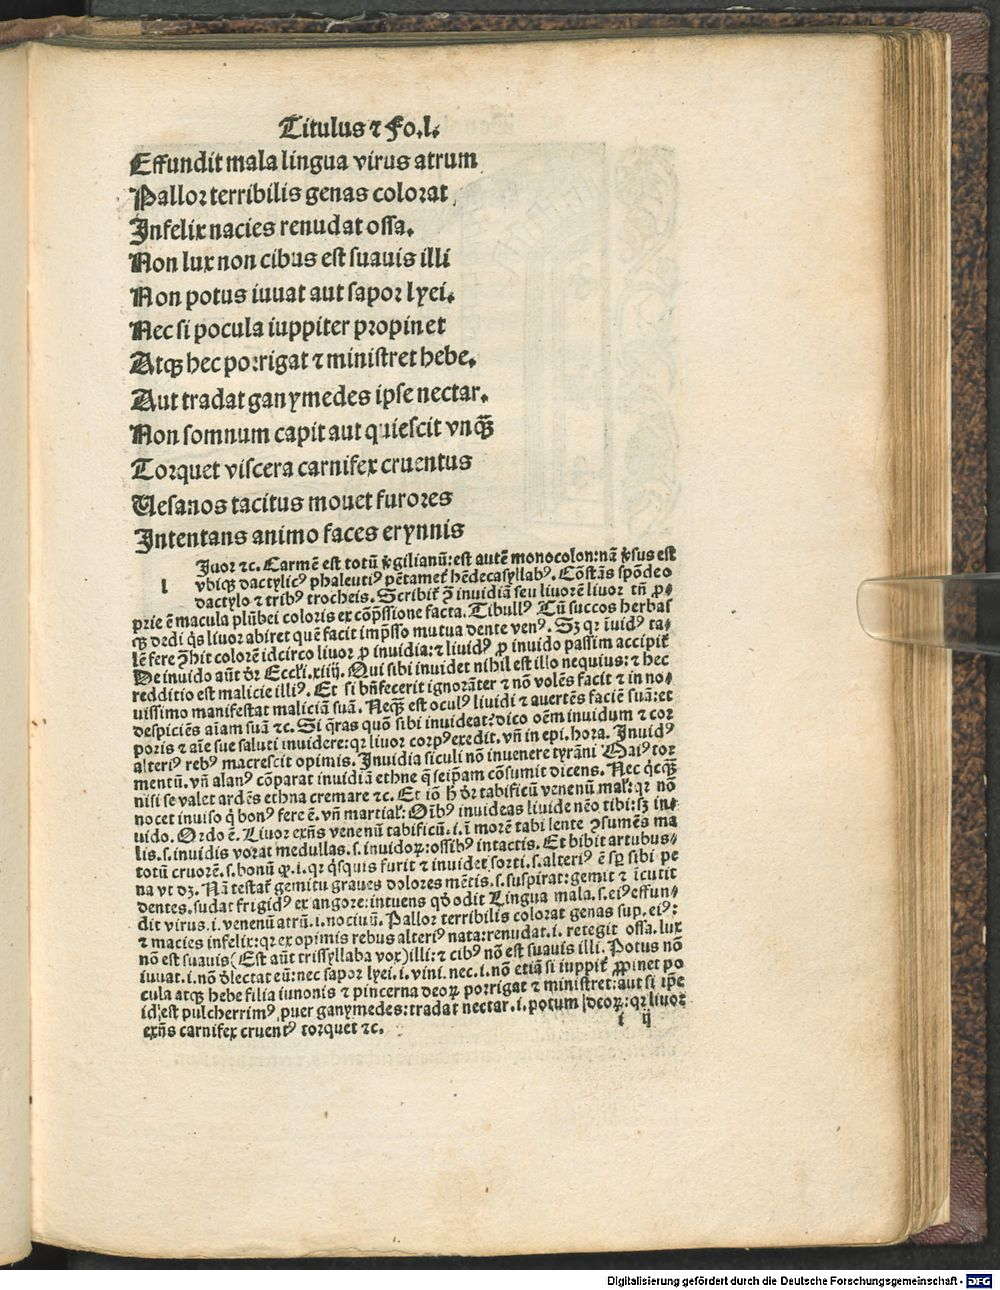 Titulus ⁊ Fo.l.
Effundit mala lingua virus atrum
Pallor terribilis genas colorat
Infelix nacies renudat ossa.
Non lux non cibus est suauis illi
Non potus iuuat aut sapor lyei.
Nec si pocula iuppiter propinet
Atqꝫ hec porrigat ⁊ ministret hebe.
Aut tradat ganymedes ipse nectar.
Non somnum capit aut quiescit vnqꝫ̃
Torquet viscera carnifex cruentus
Uesanos tacitus mouet furores
Intentans animo faces erynnis
Iuor ⁊c. Carmē est totū ꝟgilianū: est autē monocolon: nā ꝟsus est
l vbiqꝫ dactylicꝰ phaleutiꝰ pētametᷣ hēdecasyllabꝰ. Cōstās spōdeo
dactylo ⁊ tribꝰ trocheis. Scribitᷣ ꝯ̄ inuidiā seu liuorē liuor tn̄ ꝓ-
prie ē macula plūbei coloris ex cōp̄ssione facta. Tibullꝰ Cū succos herbas
qꝫ dedi q̇s liuor abiret quē facit imp̄sso mutua dente venꝰ. Sꝫ qꝛ īuidꝰ ta-
lē fere ꝯ̄hit colorē idcirco liuor ꝓ inuidia: ⁊ liuidꝰ ꝓ inuido passim accipitᷣ
De inuido aūt dr̄ Eccľi. xiiij. Qui sibi inuidet nihil est illo nequius: ⁊ hec
redditio est malicie illiꝰ. Et si bn̄fecerit ignorāter ⁊ nō volēs facit ⁊ in no-
uissimo manifestat maliciā suā. Neqꝫ̄ est oculꝰ liuidi ⁊ auertēs faciē suā: et
despiciēs aīam suā ⁊c. Si q̄ras quō sibi inuideat? dico oēm inuidum ⁊ cor
poris ⁊ aīe sue saluti inuidere: qꝛ liuor corpꝰ exedit. vn̄ in epi. hora. Inuidꝰ
alteriꝰ rebꝰ macrescit opimis. Inuidia siculi nō inuenere tyrāni Maiꝰ tor
mentū. vn̄ alanꝰ cōparat inuidiā ethne q̄ seip̄am cōsumit dicens. Nec q̇cqꝫ̄
nisi se valet ardēs ethna cremare ⁊c. Et iō h̄ dr̄ tabificū venenū maľ: qꝛ nō
nocet inuiso q̇ bonꝰ fere ē. vn̄ martiaľ: Oībꝰ inuideas liuide nēo tibi: sꝫ in-
uido. Ordo ē. Liuor exn̄s venenū tabificū. i. ī morē tabi lente ꝯsumēs ma
lis. s. inuidis vorat medullas. s. inuidoꝝ: ossibꝰ intactis. Et bibit artubus-
totū cruorē. s. bonū qꝛ. i. qꝛ q̇squis furit ⁊ inuidet sorti. s. alteriꝰ ē sp̄ sibi pe
na vt dꝫ. Nā testatᷣ gemitu graues dolores mētis. s. suspirat: gemit ⁊ īcutit
dentes. sudat frigidꝰ ex angore: intuens qd̄ odit Lingua mala. s. eiꝰ effun-
dit virus. i. venenū atrū. i. nociuū. Pallor terribilis colorat genas sup. eiꝰ:
⁊ macies infelix: qꝛ ex opimis rebus alteriꝰ nata: renudat. i. retegit ossa. lux
nō est suauis (Est aūt trissyllaba vox) illi: ⁊ cibꝰ nō est suauis illi. Potus nō
iuuat. i. nō d̄lectat eū: nec sapor lyei. i. vini. nec. i. nō etiā si iuppitᷣ ꝓpinet po
cula atqꝫ hebe filia iunonis ⁊ pincerna deoꝝ porrigat ⁊ ministret: aut si ip̄e
id est pulcherrimꝰ puer ganymedes: tradat nectar. i. potum deoꝝ: qꝛ liuor
exn̄s carnifex cruentꝰ torquet ⁊c.
i ij
Digitalisierung gefördert durch die Deutsche Forschungsgemeinschaft - DFG